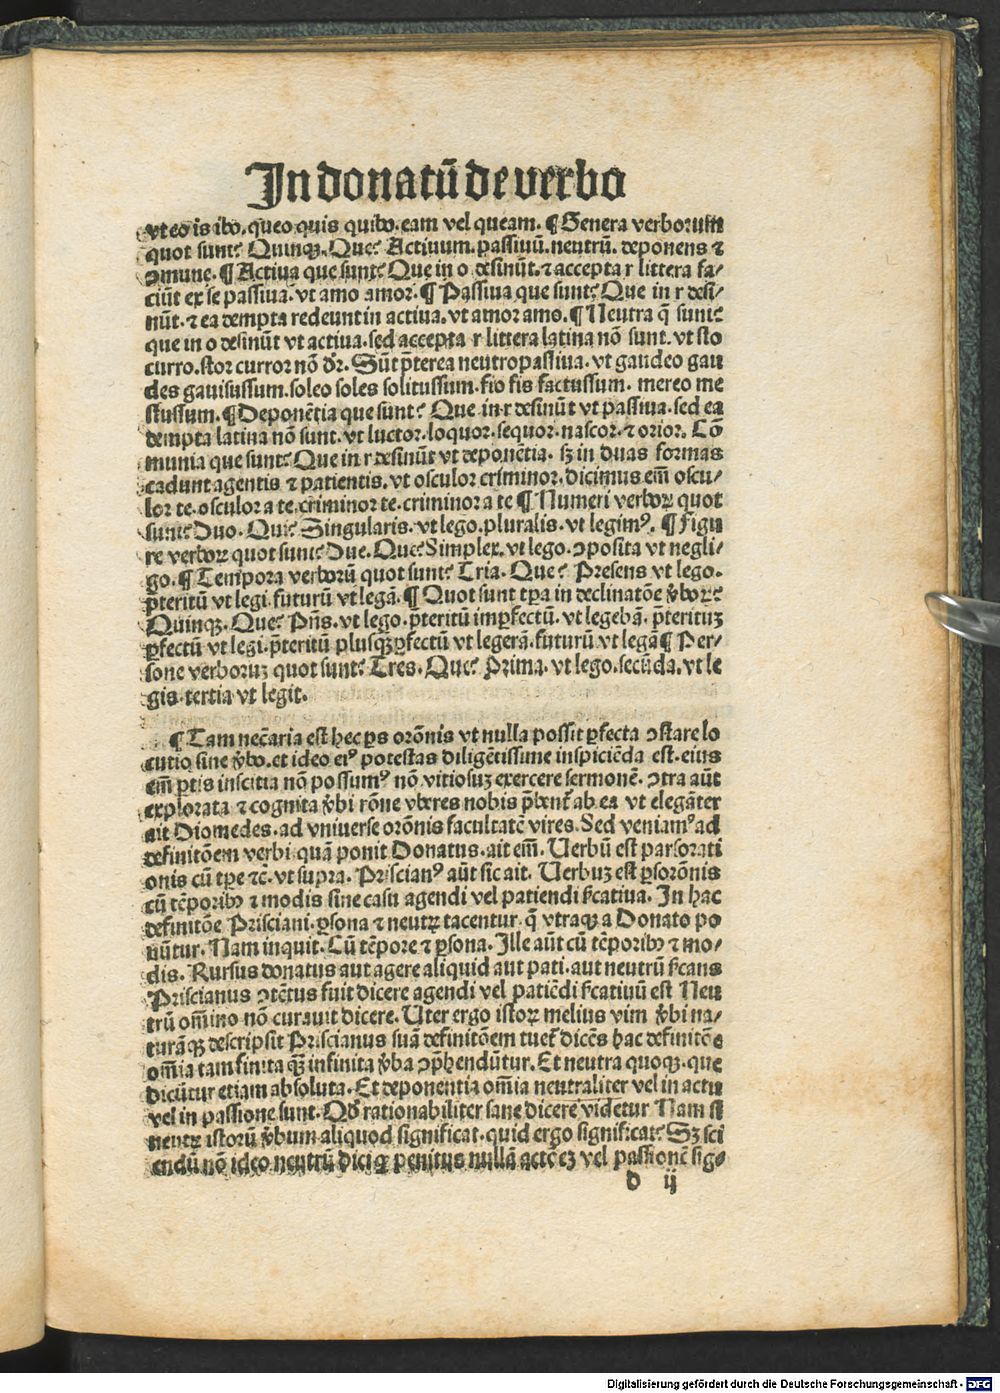 In donatū de verbo
vt eo is ibo. queo quis quibo. eam vel queam. ¶ Genera verborum
quot sunt? Quinqꝫ. Que? Actiuum. passiuū. neutrū. deponens ⁊
ↄmune. ¶ Actiua que sunt? Que in o desinūt. ⁊ accepta r littera fa-
ciūt ex se passiua. vt amo amor. ¶ Passiua que sunt? Que in r desi-
nūt. ⁊ ea dempta redeunt in actiua. vt amor amo. ¶ Neutra q̄ sunt?
que in o desinūt vt actiua. sed accepta r littera latina nō sunt. vt sto
curro. stor curror nō dr̄. Sūt p̄terea neutropassiua. vt gaudeo gau
des gauisussum. soleo soles solitussum. fio fis factussum. mereo me
stussum. ¶ Deponētia que sunt? Que in r desinūt vt passiua. sed ea
dempta latina nō sunt. vt luctor. loquor. sequor. nascor. ⁊ orior. Cō
munia que sunt? Que in r desinūt vt deponētia. sꝫ in duas formas
cadunt agentis ⁊ patientis. vt osculor criminor. dicimus em̄ oscu-
lor te. osculor a te. criminor te. criminor a te ¶ Numeri verboꝝ quot
sunt? Duo. Qui? Singularis. vt lego. pluralis. vt legimꝰ. ¶ Figu
re verboꝝ quot sunt? Due. Que? Simplex. vt lego. ↄposita vt negli-
go. ¶ Tempora verborū quot sunt? Tria. Que? Presens vt lego.
p̄teritū vt legi. futurū vt legā. ¶ Quot sunt tp̄a in declinatōe v̄boꝝ?
Quinqꝫ. Que? Pn̄s. vt lego. p̄teritū imꝑfectū. vt legebā. p̄terituꝫ
ꝑfectū vt legi. p̄teritū plusqꝫꝑfectū vt legerā. futurū vt legā ¶ Per-
sone verboruꝫ quot sunt? Tres. Que? Prima. vt lego. secūda. vt le
gis. tertia vt legit.
¶ Tam neccāria est hec ꝑs orōnis vt nulla possit ꝑfecta ↄstare lo
cutio sine v̄bo. et ideo eiꝰ potestas diligētissime inspiciēda est. eius
em̄ ꝑtis inscitia nō possumꝰ nō vitiosuꝫ exercere sermonē. ↄtra aūt
explorata ⁊ cognita v̄bi rōne vberes nobis p̄bent̄ ab ea vt elegāter
ait Diomedes. ad vniuerse orōnis facultatē vires. Sed veniamꝰ ad
definitōem verbi quā ponit Donatus. ait em̄. Uerbū est pars orati
onis cū tꝑe ⁊c̄. vt supra. Priscianꝰ aūt sic ait. Uerbuꝫ est ꝑs orōnis
cū tēporibꝰ ⁊ modis sine casu agendi vel patiendi sīcatiua. In hac
definitōe Prisciani. ꝑsona ⁊ neutꝝ tacentur. q̄ vtraqꝫ a Donato po
nūtur. Nam inquit. Cū tēpore ⁊ ꝑsona. Ille aūt cū tēporibꝰ ⁊ mo-
dis. Rursus donatus aut agere aliquid aut pati. aut neutrū sīcans
Priscianus ↄtētus fuit dicere agendi vel patiēdi sīcatiuū est Neu
trū om̄ino nō curauit dicere. Uter ergo istoꝝ melius vim v̄bi na-
turāqꝫ descripsit Priscianus suā definitōem tuet̄ dicēs hac definitōe
om̄ia tam finita qꝫ infinita v̄ba ↄp̄hendūtur. Et neutra quoqꝫ. que
dicūtur etiam absoluta. Et deponentia om̄ia neutraliter vel in actu
vel in passione sunt. Qd̄ rationabiliter sane dicere videtur Nam si
neutꝝ istorū v̄bum aliquod significat. quid ergo significat? Sꝫ sci
endū nō ideo neutrū dici qꝛ penitus nullā actōeꝫ vel passionē sig-
d ij
Digitalisierung gefördert durch die Deutsche Forschungsgemeinschaft - DFG